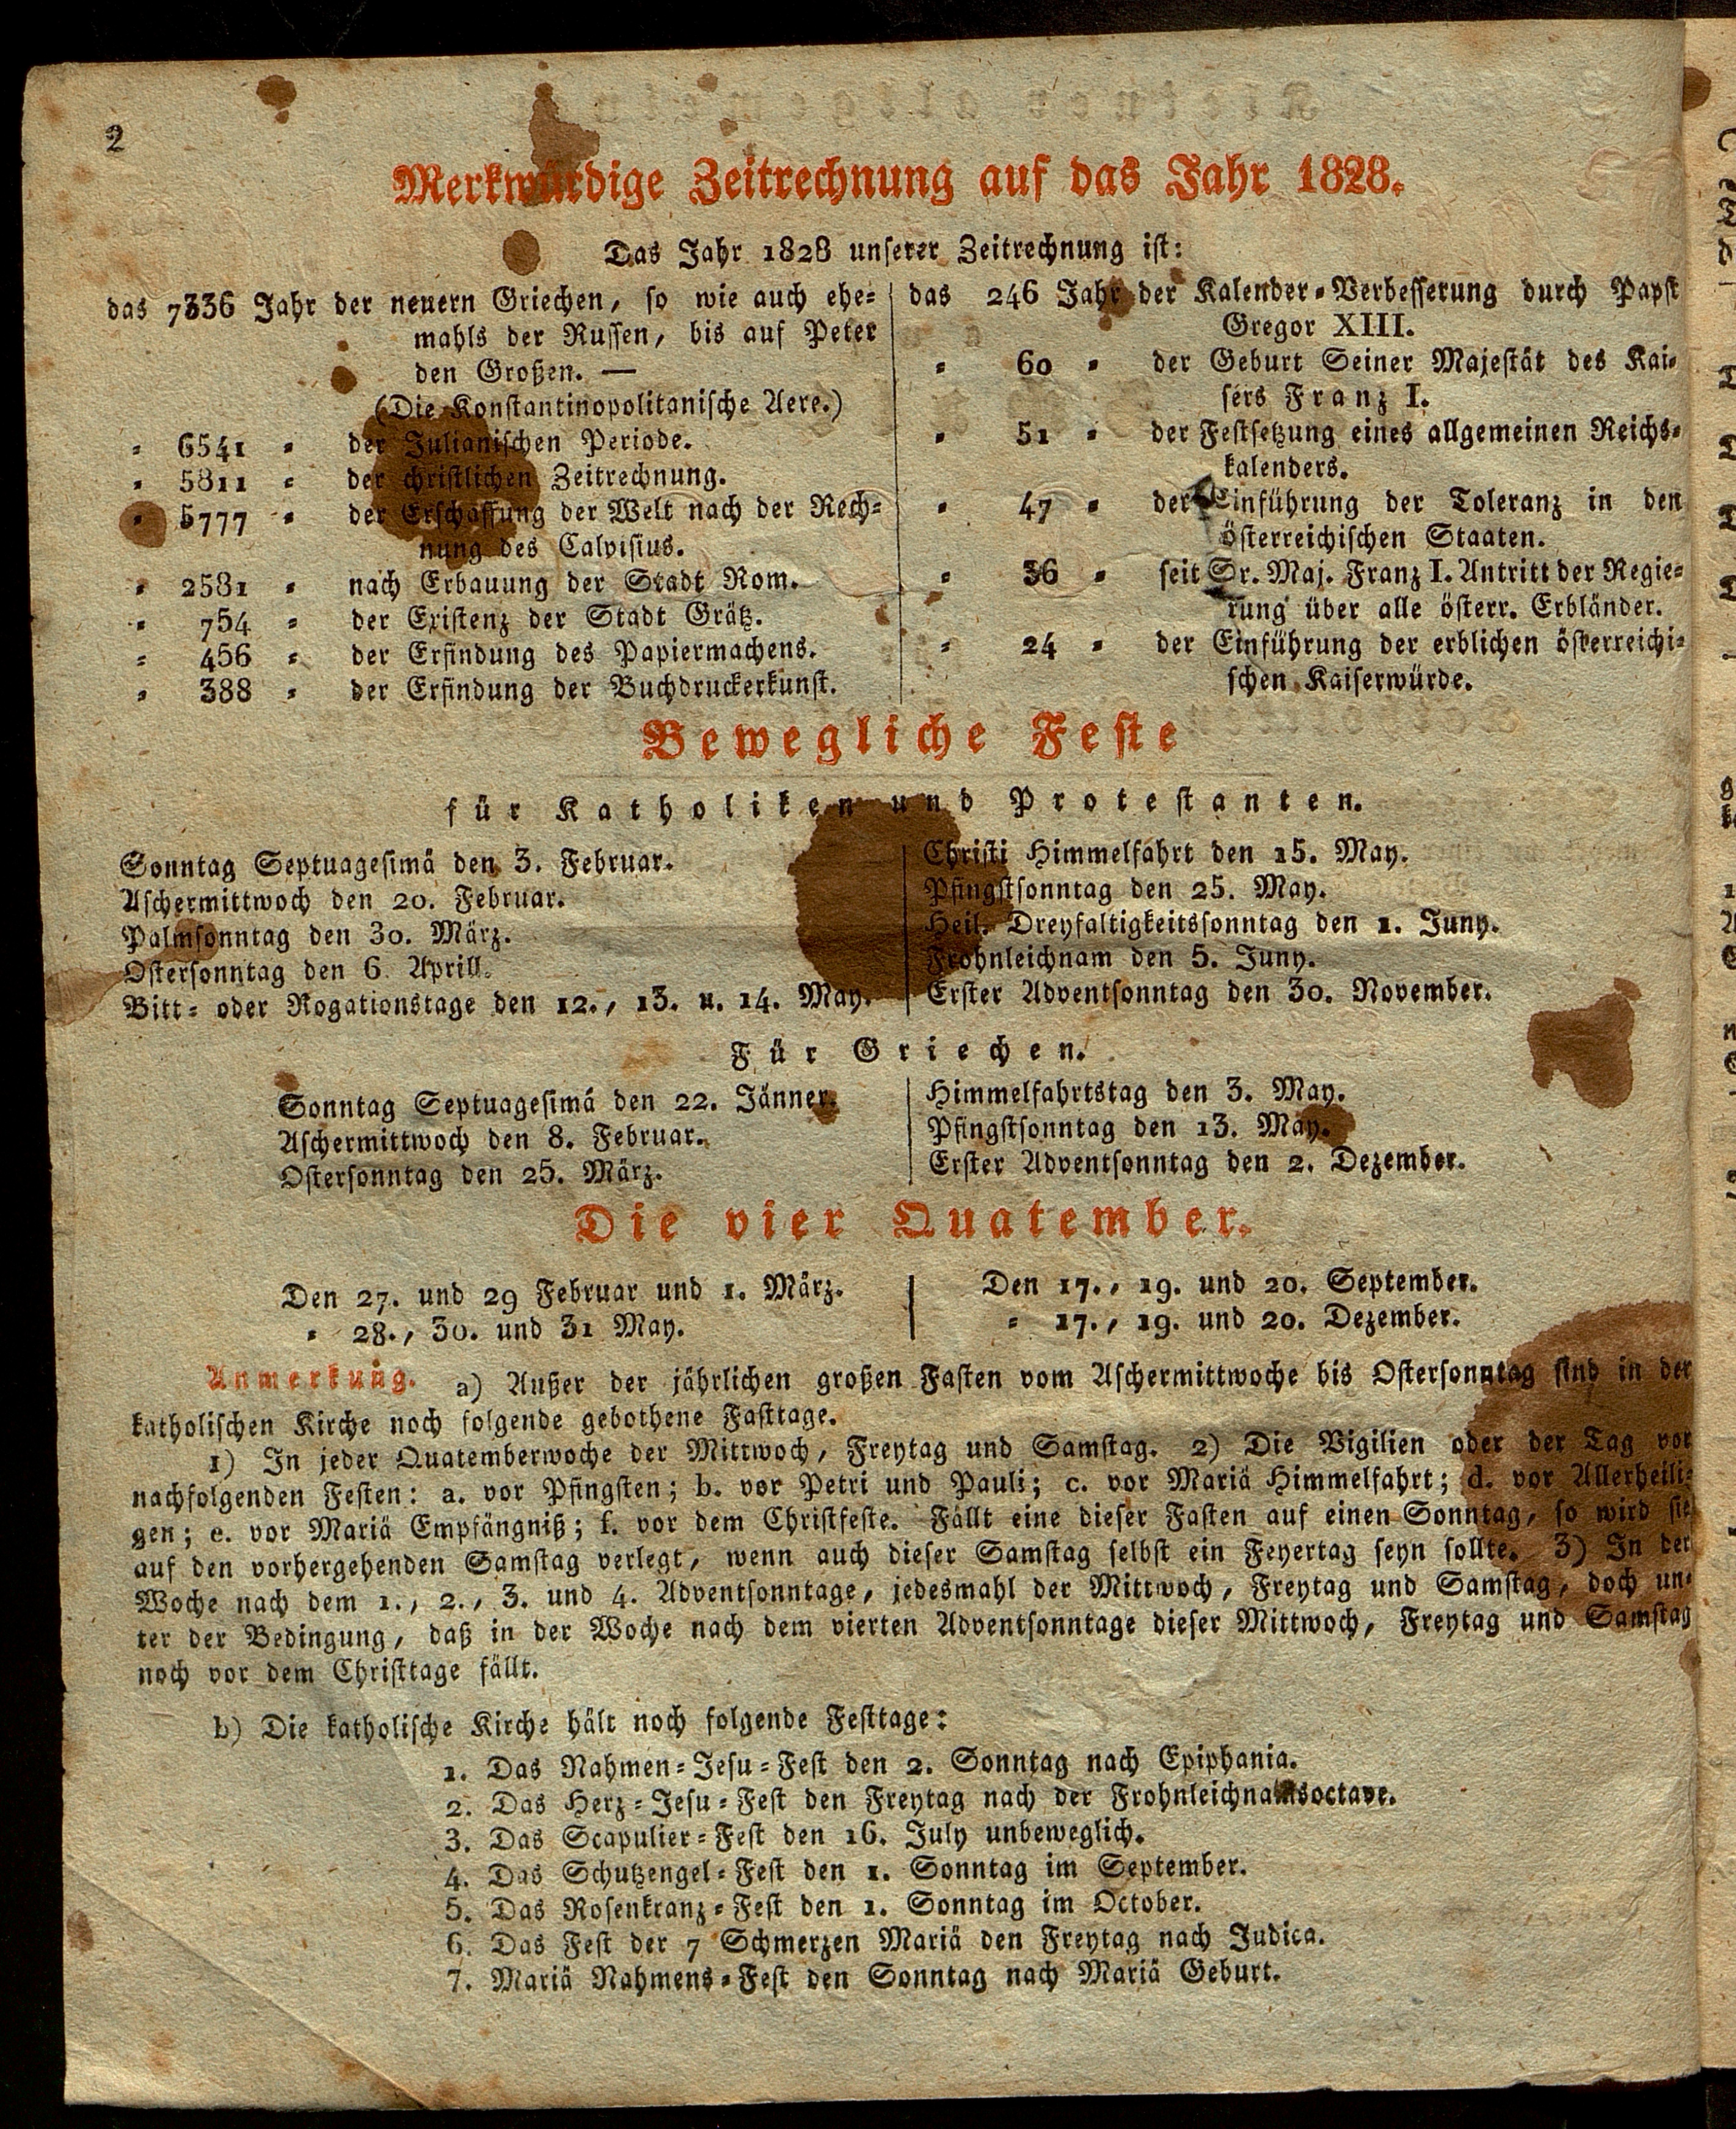 2
Merkwürdige Zeitrechnung auf das Jahr 1828.
Das Jahr 1828 unserer Zeitrechnung ist:
das 7336 Jahr der neuern Griechen, so wie auch ehe=
mahls der Russen, bis auf Peter
den Großen. —
(Die Konstantinopolitanische Aere.)
= 6541 = der Julianischen Periode.
= 5811 = der christlichen Zeitrechnung.
= 5777 = der Erschaffung der Welt nach der Rech=
nung des Calvisius.
= 2581 = nach Erbauung der Stadt Rom.
= 754 = der Existenz der Stadt Grätz.
= 456 = der Erfindung des Papiermachens.
= 388 = der Erfindung der Buchdruckerkunst.
das 246 Jahr der Kalender=Verbesserung durch Papst
Gregor XIII.
= 60 = der Geburt Seiner Majestät des Kai=
sers Franz I.
= 51 = der Festsetzung eines allgemeinen Reichs=
kalenders.
= 47 = der Einführung der Toleranz in den
österreichischen Staaten.
= 36 = seit Sr. Maj. Franz I. Antritt der Regie=
rung über alle österr. Erbländer.
= 24 = der Einführung der erblichen österreichi=
schen Kaiserwürde.
Bewegliche Feste
für Katholiken und Protestanten.
Sonntag Septuagesimä den 3. Februar.
Aschermittwoch den 20. Februar.
Palmsonntag den 30. März.
Ostersonntag den 6. Aprill.
Bitt= oder Rogationstage den 12., 13. u. 14. May.
Christi Himmelfahrt den 15. May.
Pfingstsonntag den 25. May.
Heil. Dreyfaltigkeitssonntag den 1. Juny.
Frohnleichnam den 5. Juny.
Erster Adventsonntag den 30. November.
Für Griechen.
Sonntag Septuagesimä den 22. Jänner.
Aschermittwoch den 8. Februar.
Ostersonntag den 25. März.
Himmelfahrtstag den 3. May.
Pfingstsonntag den 13. May.
Erster Adventsonntag den 2. Dezember.
Die vier Quatember.
Den 27. und 29 Februar und 1. März.
= 28., 30. und 31 May.
Den 17., 19. und 20. September.
= 17., 19. und 20. Dezember.
Anmerkung. a) Außer der jährlichen großen Fasten vom Aschermittwoche bis Ostersonntag sind in der
katholischen Kirche noch folgende gebothene Fasttage.
1) In jeder Quatemberwoche der Mittwoch, Freytag und Samstag. 2) Die Vigilien oder der Tag vor
nachfolgenden Festen: a. vor Pfingsten; b. vor Petri und Pauli; c. vor Mariä Himmelfahrt; d. vor Allerheili=
gen; e. vor Mariä Empfängniß; f. vor dem Christfeste. Fällt eine dieser Fasten auf einen Sonntag, so wird sie
auf den vorhergehenden Samstag verlegt, wenn auch dieser Samstag selbst ein Feyertag seyn sollte. 3) In der
Woche nach dem 1., 2., 3. und 4. Adventsonntage, jedesmahl der Mittwoch, Freytag und Samstag, doch un=
ter der Bedingung, daß in der Woche nach dem vierten Adventsonntage dieser Mittwoch, Freytag und Samstag
noch vor dem Christtage fällt.
b) Die katholische Kirche hält noch folgende Festtage:
1. Das Nahmen=Jesu=Fest den 2. Sonntag nach Epiphania.
2. Das Herz=Jesu=Fest den Freytag nach der Frohnleichnamsoctave.
3. Das Scapulier=Fest den 16. July unbeweglich.
4. Das Schutzengel=Fest den 1. Sonntag im September.
5. Das Rosenkranz=Fest den 1. Sonntag im October.
6. Das Fest der 7 Schmerzen Mariä den Freytag nach Judica.
7. Mariä Nahmens=Fest den Sonntag nach Mariä Geburt.